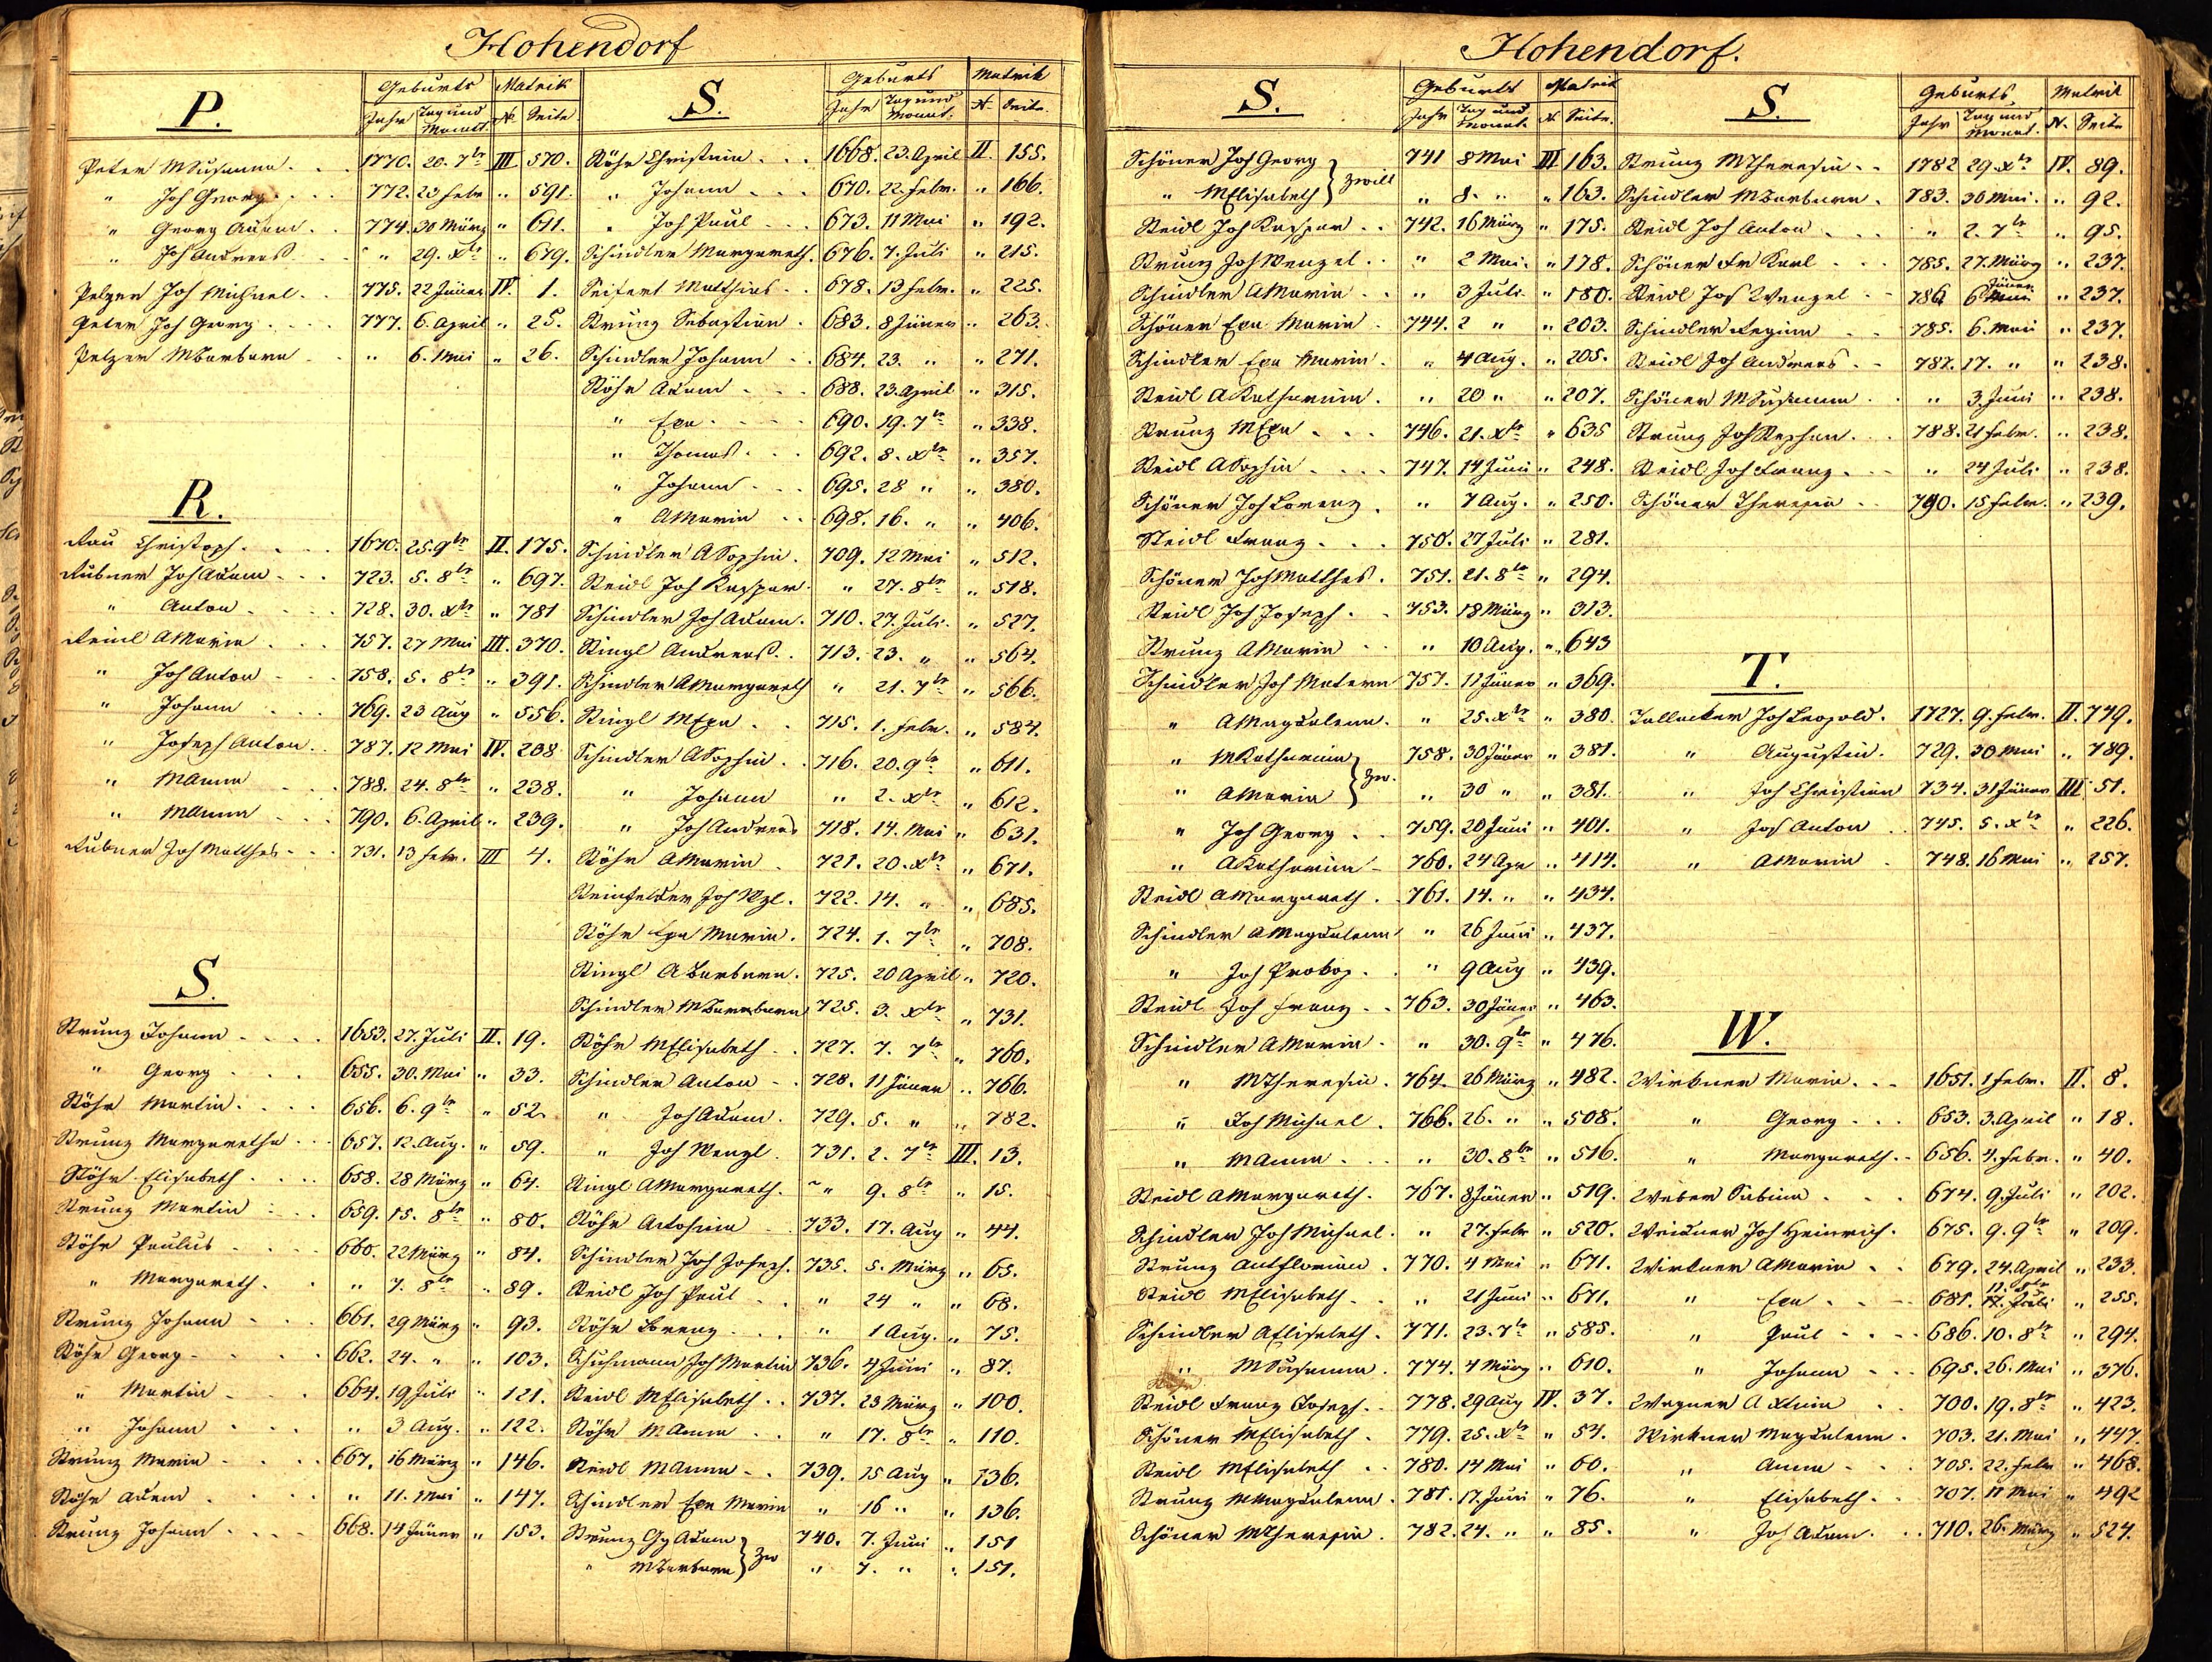 Hohendorf
P.
Geburts Matrik
Jahr Tag und Monat. N. Seite
Peter MSusanna. 1770. 20. 7br III 570.
" Joh Georg. 772. 23 Febr " 591.
" Georg Adam. 774. 30 März " 611.
" Joh Andreas " 29. Xbr " 679.
Pelzer Joh Michael. 775. 22 Jäner IV. 1.
Peter Joh Georg. 777. 6. April " 25.
Pelzer MBarbara " 6. Mai " 26.
R.
Rau Christoph. 1670. 25. 9br II. 175.
Rubner Joh Adam. 723. 5. 8br " 697.
" Anton. 728. 30. Xbr " 781
Reinl AMaria. 757. 27 Mai III. 370.
" Joh Anton 758. 5. 8br " 391.
" Johann 769. 23 Aug " 556.
" Joseph Anton. 787. 12 Mai IV. 208
" MAnna 788. 24. 8br " 238.
" MAnna 790. 6. April " 239.
Rubner Joh Mathes. 731. 13 Febr. III 4.
S.
Strunz Johann 1653. 27. Juli II. 19.
" Georg 655. 30. Mai " 33.
Stöhr Martin. 656. 6. 9br " 52.
Strunz Margaretha 657. 12. Aug. " 59.
Stöhr Elisabeth 658. 28 März " 64.
Strunz Martin 659. 15. 8br " 80.
Stöhr Paulus 660. 22 März " 84.
" Margareth. " 7. 8br " 89.
Strunz Johann 661. 29 März " 93.
Stöhr Georg 662. 24. " " 103.
" Martin 664. 19 Juli " 121.
" Johann " 3 Aug. " 122.
Strunz Maria 667. 16 März " 146.
Stöhr Adam " 11. Mai " 147.
Strunz Johann 668. 14 Jäner " 153.
S.
Geburts Matrik
Jahr Tag und Monat. N. Seite.
Stöhr Christina 1668. 23. April II. 155.
" Johann 670. 22. Febr. " 166.
" Joh Paul 673. 11 Mai " 192.
Schindler Margareth. 676. 7. Juli " 215.
Seifert Matthias 678. 13 Febr. " 225.
Strunz Sebastian 683. 8 Jäner " 263.
Schindler Johann 684. 23. " " 271.
Stöhr Adam 688. 23. April " 315.
" Eva 690. 19. 7br " 338.
" Thomas 692. 8. Xbr " 357.
" Johann 695. 28 " " 380.
" AMaria 698. 16. " " 406.
Schindler ASophia. 709. 12 Mai " 512.
Steidl Joh Kaspar. " 27. 8br " 518.
Schindler Joh Adam. 710. 27. Juli. " 527.
Stingl Andreas. 713. 23. " " 564.
Schindler AMargareth " 21. 7br " 566.
Stingl MEva 715. 1. Febr. " 584.
Schindler ASophia 716. 20. 9br " 611.
" Johann " 2. Xbr " 612.
" Joh Andreas 718. 14. Mai " 631.
Stöhr AMaria 721. 20. Xbr " 671.
Steinfelder Joh Wzl. 722. 14. " " 685.
Stöhr Eva Maria. 724. 1. 7br " 708.
Stingl ABarbara. 725. 20 April " 720.
Schindler MBarbara 725. 3. Xbr " 731.
Stöhr MElisabeth 727. 7. 7br " 760.
Schindler Anton 728. 11 Jäner " 766.
" Joh Adam. 729. 5. " " 782.
" Joh Wenzl 731. 2. 7br III. 13.
Stingl AMargareth. " 9. 8br " 15.
Stöhr 733. 17. Aug " 44.
Schindler Joh Joseph. 735. 5. März " 65.
Steidl Joh Paul " 24 " " 68.
Stöhr Lorenz " 1 Aug. " 75.
Schuhmann Joh Martin 736. 4 Juni " 87.
Steidl MElisabeth. 737. 23 März " 100.
Stöhr MAnna " 17. 8br " 110.
Steidl MAnna 739. 15 Aug " 136.
Schindler Eva Maria " 16 " " 136.
Strunz Gg Adam } Zw 740. 7. Juni " 151
" MBarbara " 7. " " 151.
Hohendorf.
S.
Geburts Matrik
Jahr Tag und Monat N. Seite.
Schöner Joh Georg } Zwill 741 8 Mai III 163.
" MElisabeth " 8. " " 163.
Steidl Joh Kaspar 742. 16 März " 175.
Strunz Joh Wenzel " 2 Mai. " 178.
Schindler AMaria " 3 Juli " 180.
Schöner Eva Maria 744. 2 " " 203.
Schindler Eva Maria. " 4 Aug. " 205.
Steidl AKatharina. " 20 " " 207.
Strunz MEva 746. 21. Xbr " 635
Steidl ASophia 747. 14 Juni " 248.
Schöner Joh Lorenz " 7 Aug. " 250.
Steidl Franz 750. 27 Juli " 281.
Schöner Joh Matthes. 751. 21. 8br " 294.
Steidl Joh Joseph. 753. 18 März " 313.
Strunz AMaria " 10 Aug. " 643
Schindler Joh Matern 757. 11 Jäner " 369.
" AMagdalena. " 25. Xbr " 380.
" MKatharina } Zw. 758. 30 Jäner " 381.
" AMaria " 30 " " 381.
" Joh Georg 759. 20 Juni " 401.
" AKatharina 760. 24 Apr " 414.
Steidl AMargareth. 761. 14. " " 434.
Schindler AMagdalena " 26 Juni " 437.
" Joh Prokop. " 9 Aug " 439.
Steidl Joh Franz 763. 30 Jäner " 463.
Schindler AMaria. " 30. 9br " 476.
" MTheresia. 764. 26 März " 482.
" Joh Michael. 766. 26. " " 508.
" MAnna " 30. 8br " 516.
Steidl AMargareth. 767. 8 Jäner " 519.
Schindler Joh Michael. " 27. Febr " 520.
Strunz Ant Florian 770. 4 Mai " 671.
Steidl MElisabeth " 21 Juni " 671.
Schindler AElisabeth. 771. 23. 7br " 585.
" MSusanna. 774. 4 März " 610.
Steidl Franz Joseph. 778. 29 Aug IV. 37.
Schöner MElisabeth. 779. 25. Xbr " 54.
Steidl MElisabeth 780. 14 Mai " 60.
Strunz MMagdalena. 781. 17. Juni " 76.
Schöner MTheresia. 782. 24. " " 85.
S.
Geburts Matrik
Jahr Tag und Monat. N. Seite
Strunz MTheresia. 1782 29. Xbr IV. 89.
Schindler MBarbara. 783. 30 Mai. " 92.
Steidl Joh Anton " 2. 7br " 95.
Schöner Fr Karl 785. 27. März " 237.
Steidl Jos Wenzel 786 6 Jäner " 237.
Schindler Regina 785. 6. Mai " 237.
Steidl Joh Andreas 787. 17. " " 238.
Schöner MSusanna " 3. Juni " 238.
Strunz Joh Stephan. 788. 21 Febr. " 238.
Steidl Joh Franz. " 24 Juli " 238.
Schöner Theresia 790. 15 Febr. " 239.
T.
Tallacker Joh Leopold. 1727. 9. Febr. II. 749.
" Augustin. 729. 30 Mai " 789.
" Joh Christian 734. 31 Jäner III 51.
" Jos Anton 745. 5. Xbr " 226.
" AMaria 748. 16 Mai " 257.
W.
Wirkner Maria. 1651. 1 Febr. II. 8.
" Georg 653. 3. April " 18.
" Margareth. 656. 4. Febr. " 40.
Weber Sabina 674. 9. Juli " 202.
Weidner Joh Heinrich. 675. 9. 9br " 209.
Wirkner AMaria 679. 24. April " 233.
" Eva 681. 17. Juli " 255.
" Paul 686. 10. 8br " 294.
" Johann 695. 26. Mai " 376.
Wagner A 700. 19. 8br " 423.
Wirkner Magdalena. 703. 21. Mai " 447.
" Anna 705. 22. Febr " 468.
" Elisabeth. 707. 11 Mai " 492
" Joh Adam. 710. 26. März " 524.